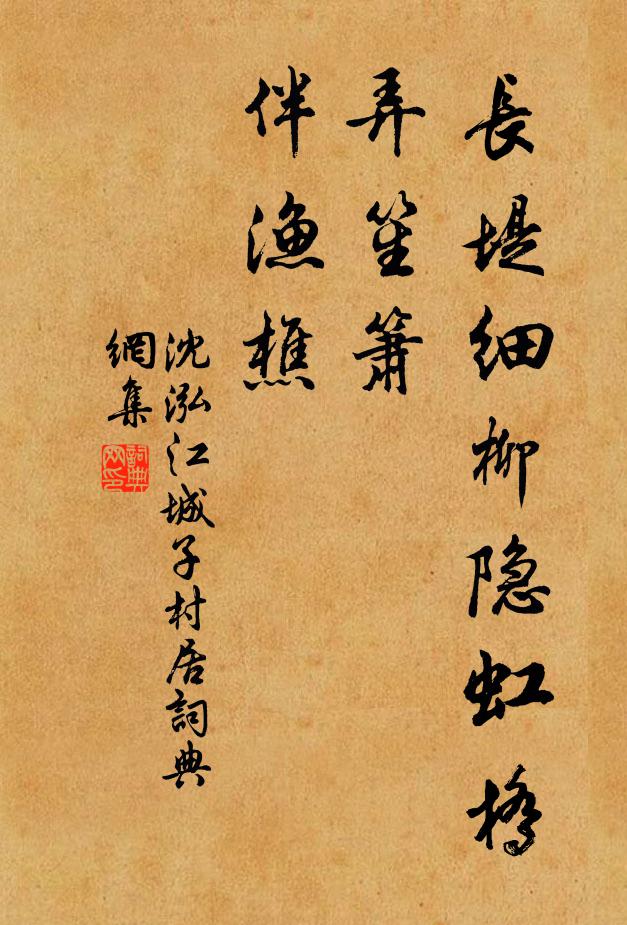 長堤细柳隐虹橋
弄笙簫
伴漁樵
沈泓江城子村居詞典
網集
詞典
网印